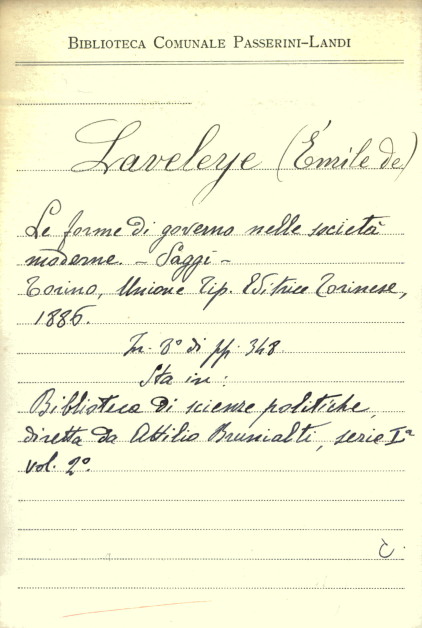 BIBLIOTECA COMUNALE PASSERINI-LANDI
Laveleye (Émile de)
Le forme di governo nelle società
moderne. - Saggi -
Torino, Unione Tip. Editrice Torinese,
1886.
In 8° di pp. 348.
Sta in:
Biblioteca di scienze politiche,
diretta da Attilio Brunialti, serie Iª
vol. 2°.